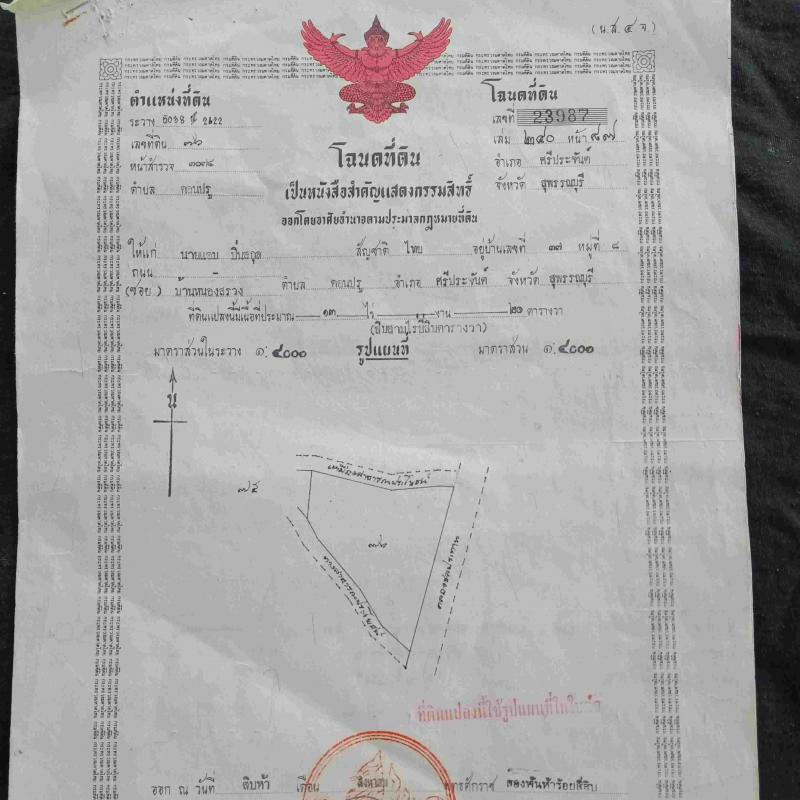 (น.ส. ๔ จ.)
ตำแหน่งที่ดิน
ระวาง 5038 II 2422
เลขที่ดิน ๗๖
หน้าสำรวจ ๓๐๓๘
ตำบล ดอนปรู
โฉนดที่ดิน
เลขที่ 23987
เล่ม ๒๔๐ หน้า ๘๗
อำเภอ ศรีประจันต์
จังหวัด สุพรรณบุรี
โฉนดที่ดิน
เป็นหนังสือสำคัญแสดงกรรมสิทธิ์
ออกโดยอาศัยอำนาจตามประมวลกฎหมายที่ดิน
ให้แก่ นายแอบ ปิ่นสกุล สัญชาติ ไทย อยู่บ้านเลขที่ ๓๗ หมู่ที่ ๘
ถนน
(ซอย) บ้านหนองสรวง ตำบล ดอนปรู อำเภอ ศรีประจันต์ จังหวัด สุพรรณบุรี
ที่ดินแปลงนี้มีเนื้อที่ประมาณ ๑๓ ไร่ งาน ๒๐ ตารางวา
(สิบสามไร่ยี่สิบตารางวา)
มาตราส่วนในระวาง ๑:๔๐๐๐ รูปแผนที่ มาตราส่วน ๑:๔๐๐๐
น
๗๕
เหมืองสาธารณประโยชน์
๗๖
ทางสาธารณประโยชน์
คลองชลประทาน
ที่ดินแปลงนี้ใช้รูปแผนที่ใน
ออก ณ วันที่ สิบห้า เดือน สิงหาคม พุทธศักราช สองพันห้าร้อยสี่สิบ